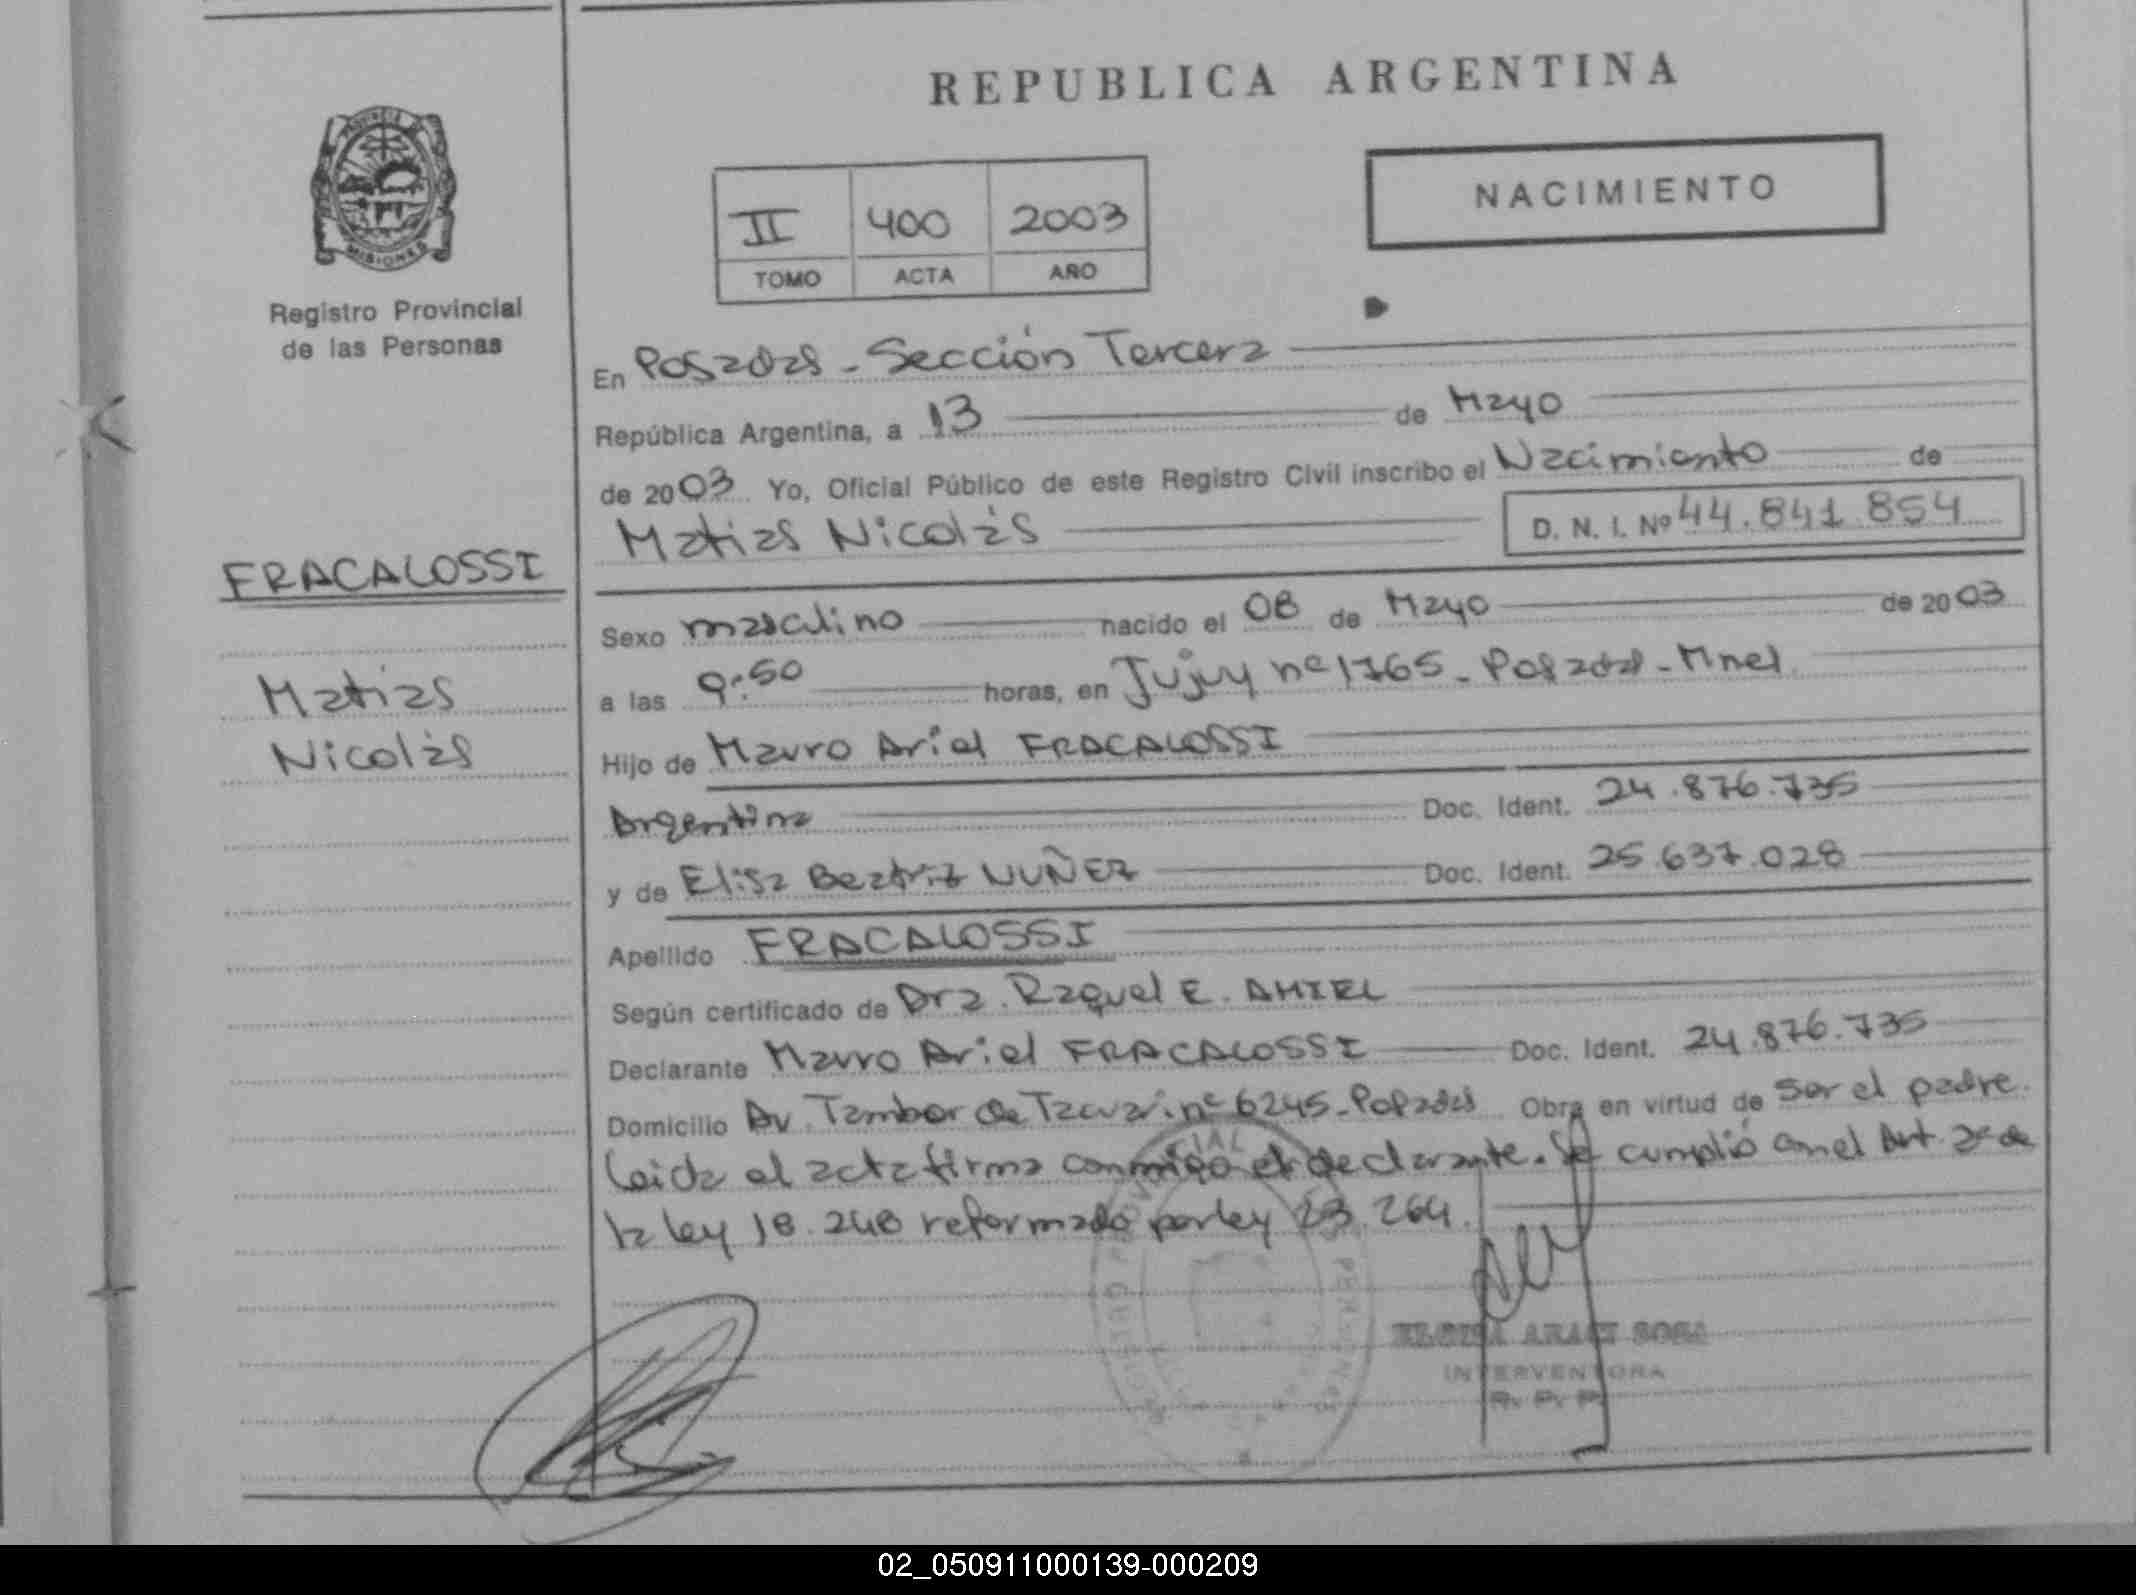 REPUBLICA ARGENTINA
NACIMIENTO
II 400 2003
TOMO ACTA AÑO
PROVINCIA DE
MISIONES
Registro Provincial
de las Personas
En Posadas - Sección Tercera
República Argentina, a 13 de Mayo
de 2003 Yo, Oficial Público de este Registro Civil inscribo el Nacimiento de
Matias Nicolás D. N. I. Nº 44.841.854
FRACALOSSI
Matias
Nicolás
Sexo masculino nacido el 08 de Mayo de 2003
a las 9:50 horas, en Jujuy nº 1765 - Posadas - Mnes.
Hijo de Mauro Ariel FRACALOSSI
Argentina Doc. Ident. 24.876.735
y de Elisa Beatriz NUÑEZ Doc. Ident. 25.637.028
Apellido FRACALOSSI
Según certificado de Dra. Raquel E. AMIEL
Declarante Mauro Ariel FRACALOSSI Doc. Ident. 24.876.735
Domicilio Av. Tambor de Tacuari nº 6245 - Posadas Obra en virtud de ser el padre.
Leida el acta firma conmigo el declarante. Se cumplió con el Art. 2º de
la ley 18.248 reformado por ley 23.264.
ARACI SOSA
INTERVENTORA
R. P. P.
02_050911000139-000209